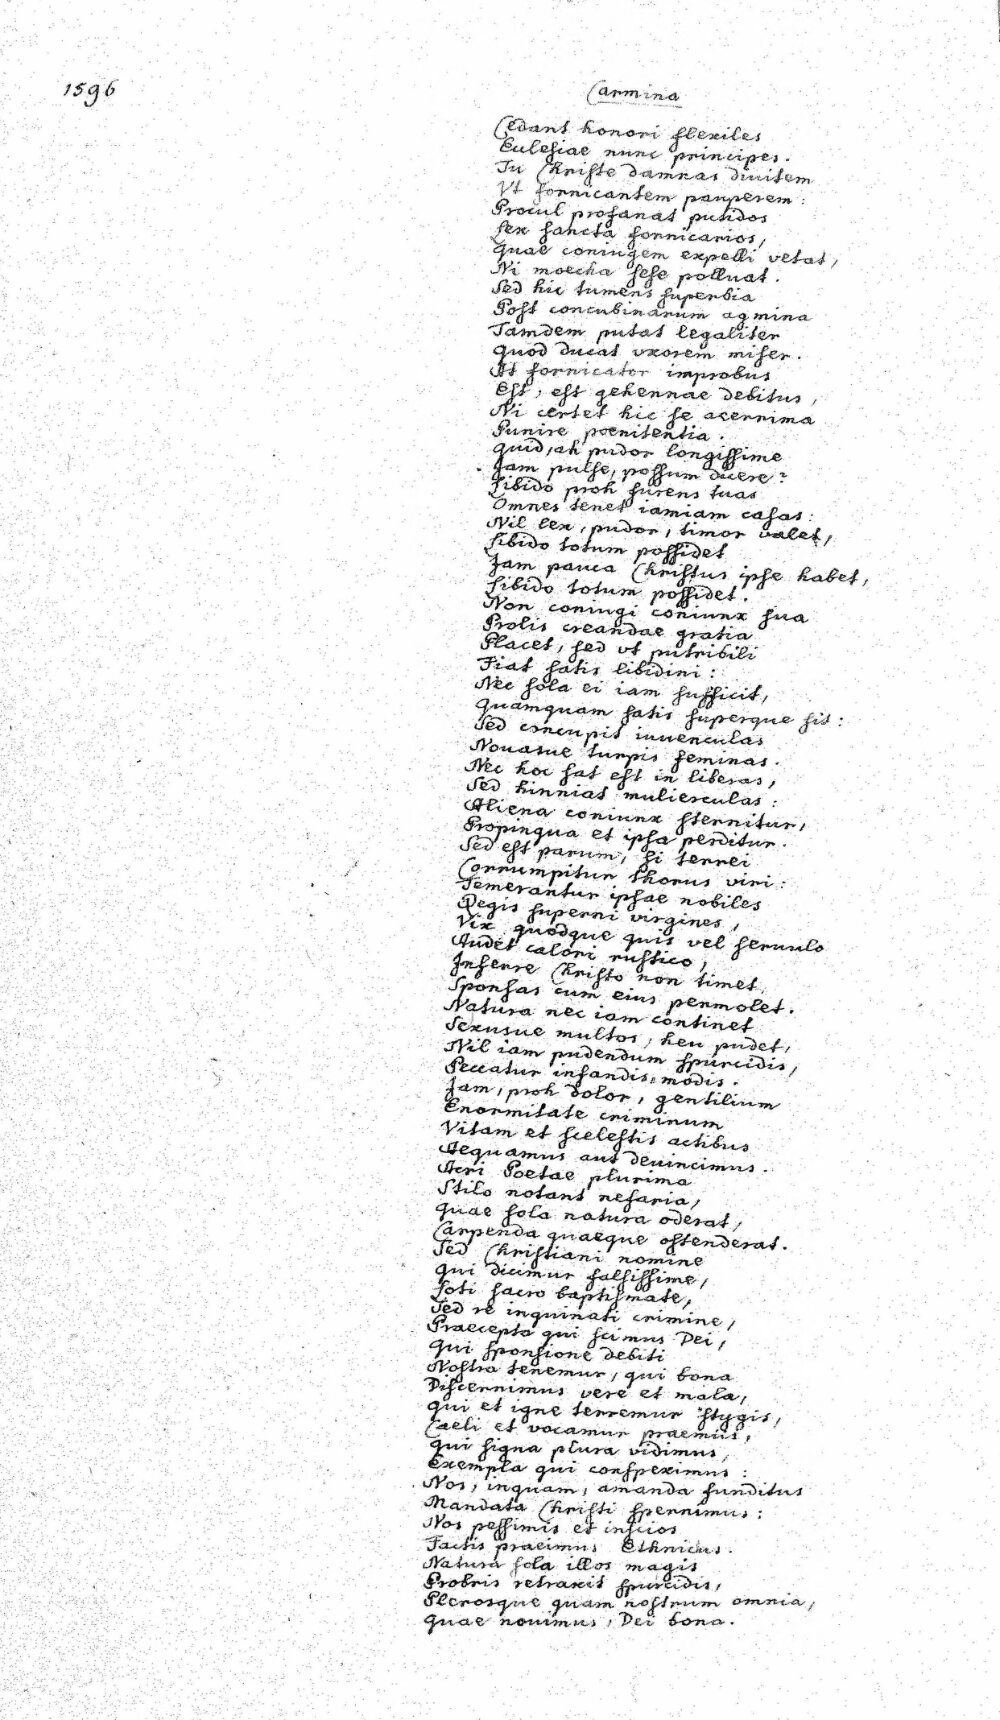 1596
Carmina
Cedant honori flexiles
Eclesiae nunc principes.
Tu Christe damnas divitem
Vt fornicantem pauperem:
Procul profanat putidos
Lex sancta fornicarios,
Quae coniugem expelli vetat,
Ni moecha sese polluat.
Sed hic tumens superbia
Post concubinarum agmina
Tamdem putat legaliter
Quod ducat vxorem miser.
At fornicator improbus
Est, est gehennae debitus,
Ni certet hic se acerrima
Punire poenitentia.
Quid, ah pudor longissime
Jam pulse, possum dicere?
Libido proh furens tuas
Omnes tenet iamiam casas:
Nil lex, pudor, timor valet,
Libido totum possidet
Jam pauca Christus ipse habet,
Libido totum possidet.
Non coniugi coniunx sua
Prolis creandae gratia
Placet, sed vt putribili
Fiat satis libidini:
Nec sola ei iam sufficit,
Quamquam satis superque sit:
Sed concupit iuuenculas
Nouasue turpis feminas.
Nec hoc sat est in liberas,
Sed hinniat mulierculas:
Aliena coniunx sternitur,
Propinqua et ipsa perditur.
Sed est parum, si terrei
Corrumpitur thorus viri:
Temerantur ipsae nobiles
Regis superni virgines,
Vix quodque quis vel seruulo
Audet calori rustico,
Inferre Christo non timet,
Sponsas cum eius permolet.
Natura nec iam continet
Sexusue multos, heu pudet,
Nil iam pudendum spurcidis,
Peccatur infandis modis.
Jam, proh dolor, gentilium
Enormitate criminum
Vitam et scelestis actibus
Aequamus aut deuincimus.
Acri Poetae plurima
Stilo notant nefaria,
Quae sola natura oderat,
Carpenda quaeque ostenderat.
Sed Christiani nomine
Qui dicimur falsissime,
Loti sacro baptismate,
Sed re inquinati crimine,
Praecepta qui scimus Dei,
Qui sponsione debiti
Nostra tenemur, qui bona
Discernimus vere et mala,
Qui et igne terremur stygis,
Caeli et vocamur praemiis,
Qui signa plura vidimus,
Exempla qui conspeximus:
Nos, inquam, amanda funditus
Mandata Christi spernimus:
Nos pessimis et inscios
Factis praeimus Ethnicus.
Natura sola illos magis
Probris retraxit spurcidis,
Plerosque quam nostrum omnia,
Quae nouimus, Dei bona.